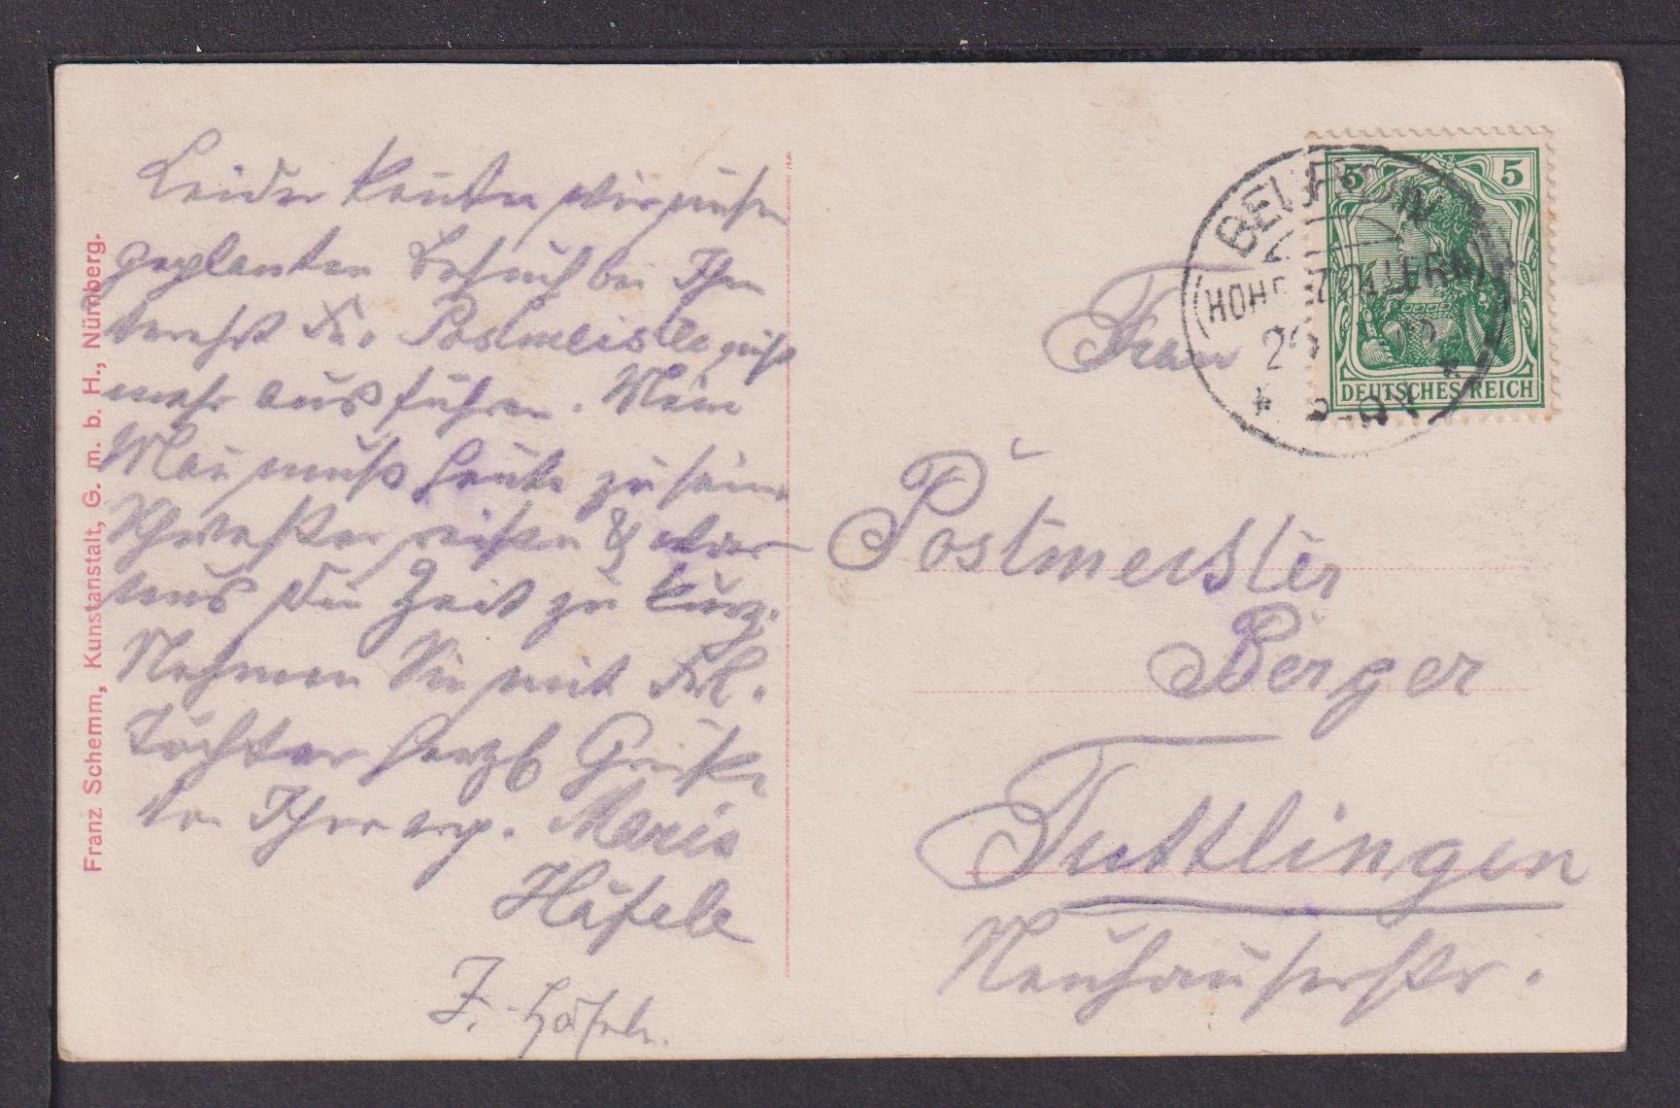 Leider konnten wir unsern
geplanten Besuch bei Ihn
verehrt Fr. Postmeister nicht
mehr ausführen. Mein
Man muß heute zu seiner
Schwester reisen & wär
uns die Zeit zu kurz.
Nehmen Sie mit Frl.
Töchter herzl Grüße
von Ihrer erg. Maria
Häfele
F. Häfele.
Franz Schemm, Kunstanstalt, G. m. b. H., Nürnberg.
BEURON
(HOHENZOLLERN)
5 5
DEUTSCHES REICH
Frau
Postmeister
Berger
Tuttlingen
Neuhauserstr.